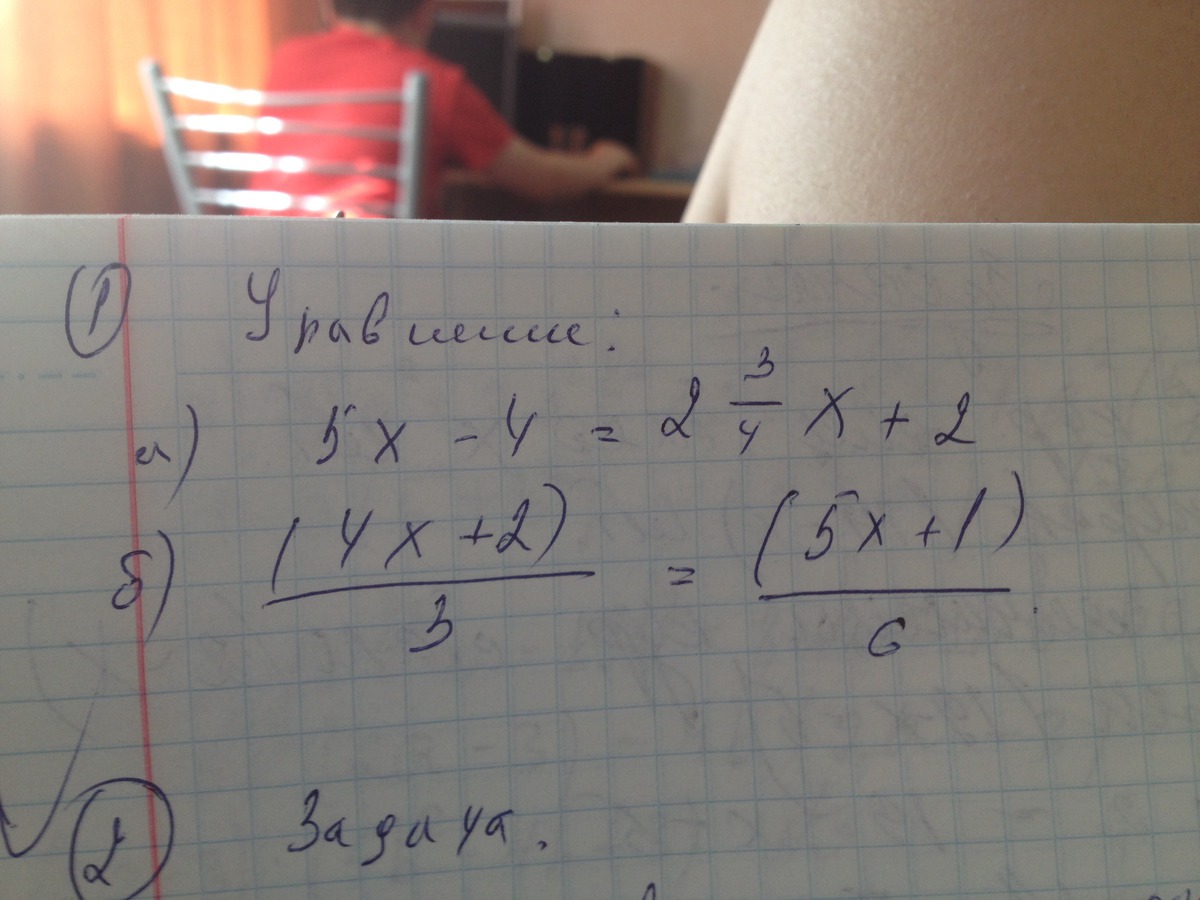 ① Уравнение:
а) 5x - 4 = 2 3/4 x + 2
б) (4x+2)/3 = (5x+1)/6.
② Задача.